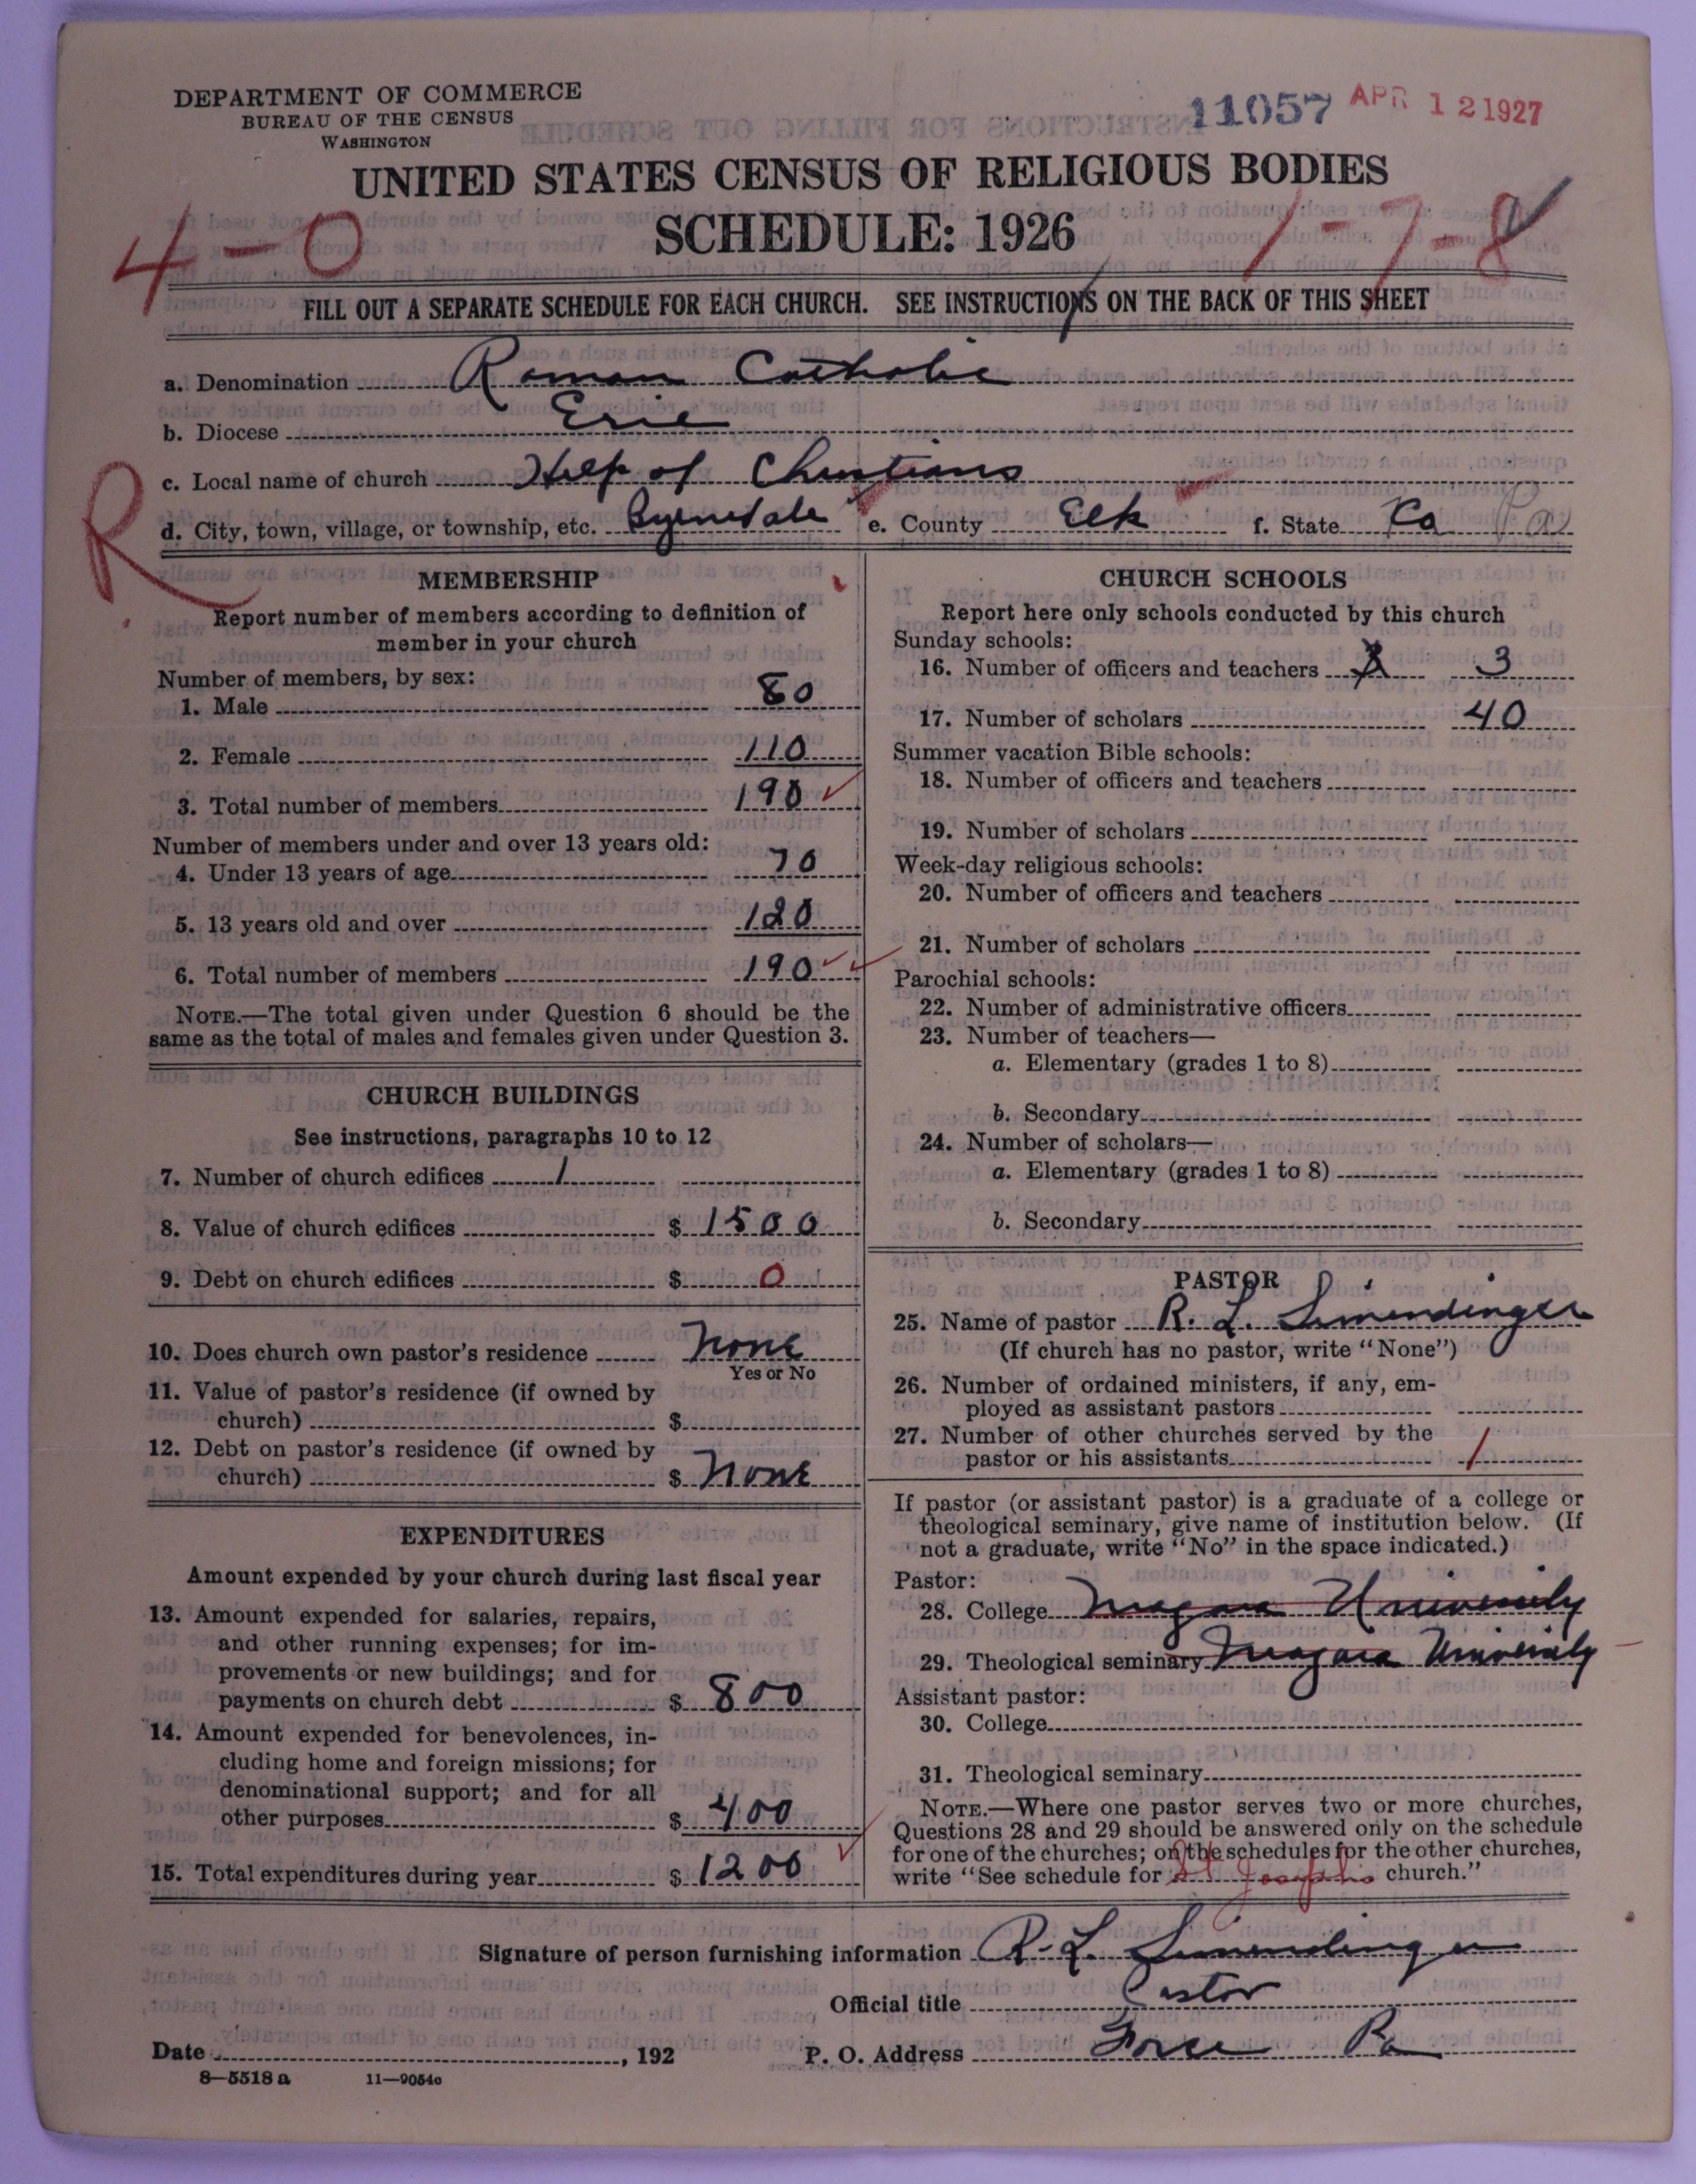 DEPARTMENT OF COMMERCE
BUREAU OF THE CENSUS
WASHINGTON
11057 APR 12 1927
UNITED STATES CENSUS OF RELIGIOUS BODIES
SCHEDULE: 1926
4-0
1-7-8
FILL OUT A SEPARATE SCHEDULE FOR EACH CHURCH. SEE INSTRUCTIONS ON THE BACK OF THIS SHEET
a. Denomination Roman Catholic
b. Diocese Erie
c. Local name of church Help of Christians
R
d. City, town, village, or township, etc. Byrnedale e. County Elk f. State Co Pa
MEMBERSHIP
Report number of members according to definition of
member in your church
Number of members, by sex:
1. Male 80
2. Female 110
3. Total number of members 190
Number of members under and over 13 years old:
4. Under 13 years of age 70
5. 13 years old and over 120
6. Total number of members 190
NOTE.—The total given under Question 6 should be the
same as the total of males and females given under Question 3.
CHURCH BUILDINGS
See instructions, paragraphs 10 to 12
7. Number of church edifices 1
8. Value of church edifices $ 1500
9. Debt on church edifices $ 0
10. Does church own pastor's residence None
Yes or No
11. Value of pastor's residence (if owned by
church) $
12. Debt on pastor's residence (if owned by
church) $ None
EXPENDITURES
Amount expended by your church during last fiscal year
13. Amount expended for salaries, repairs,
and other running expenses; for im-
provements or new buildings; and for
payments on church debt $ 800
14. Amount expended for benevolences, in-
cluding home and foreign missions; for
denominational support; and for all
other purposes $ 400
15. Total expenditures during year $ 1200
CHURCH SCHOOLS
Report here only schools conducted by this church
Sunday schools:
16. Number of officers and teachers 3
17. Number of scholars 40
Summer vacation Bible schools:
18. Number of officers and teachers
19. Number of scholars
Week-day religious schools:
20. Number of officers and teachers
21. Number of scholars
Parochial schools:
22. Number of administrative officers
23. Number of teachers—
a. Elementary (grades 1 to 8)
b. Secondary
24. Number of scholars—
a. Elementary (grades 1 to 8)
b. Secondary
PASTOR
25. Name of pastor R. L. Simendinger
(If church has no pastor, write "None")
26. Number of ordained ministers, if any, em-
ployed as assistant pastors
27. Number of other churches served by the
pastor or his assistants 1
If pastor (or assistant pastor) is a graduate of a college or
theological seminary, give name of institution below. (If
not a graduate, write "No" in the space indicated.)
Pastor:
28. College Niagara University
29. Theological seminary Niagara University
Assistant pastor:
30. College
31. Theological seminary
NOTE.—Where one pastor serves two or more churches,
Questions 28 and 29 should be answered only on the schedule
for one of the churches; on the schedules for the other churches,
write "See schedule for St. Joseph's church."
Signature of person furnishing information R. L. Simendinger
Official title Pastor
Date , 192
P. O. Address Force Pa
8—5518 a 11—9054c